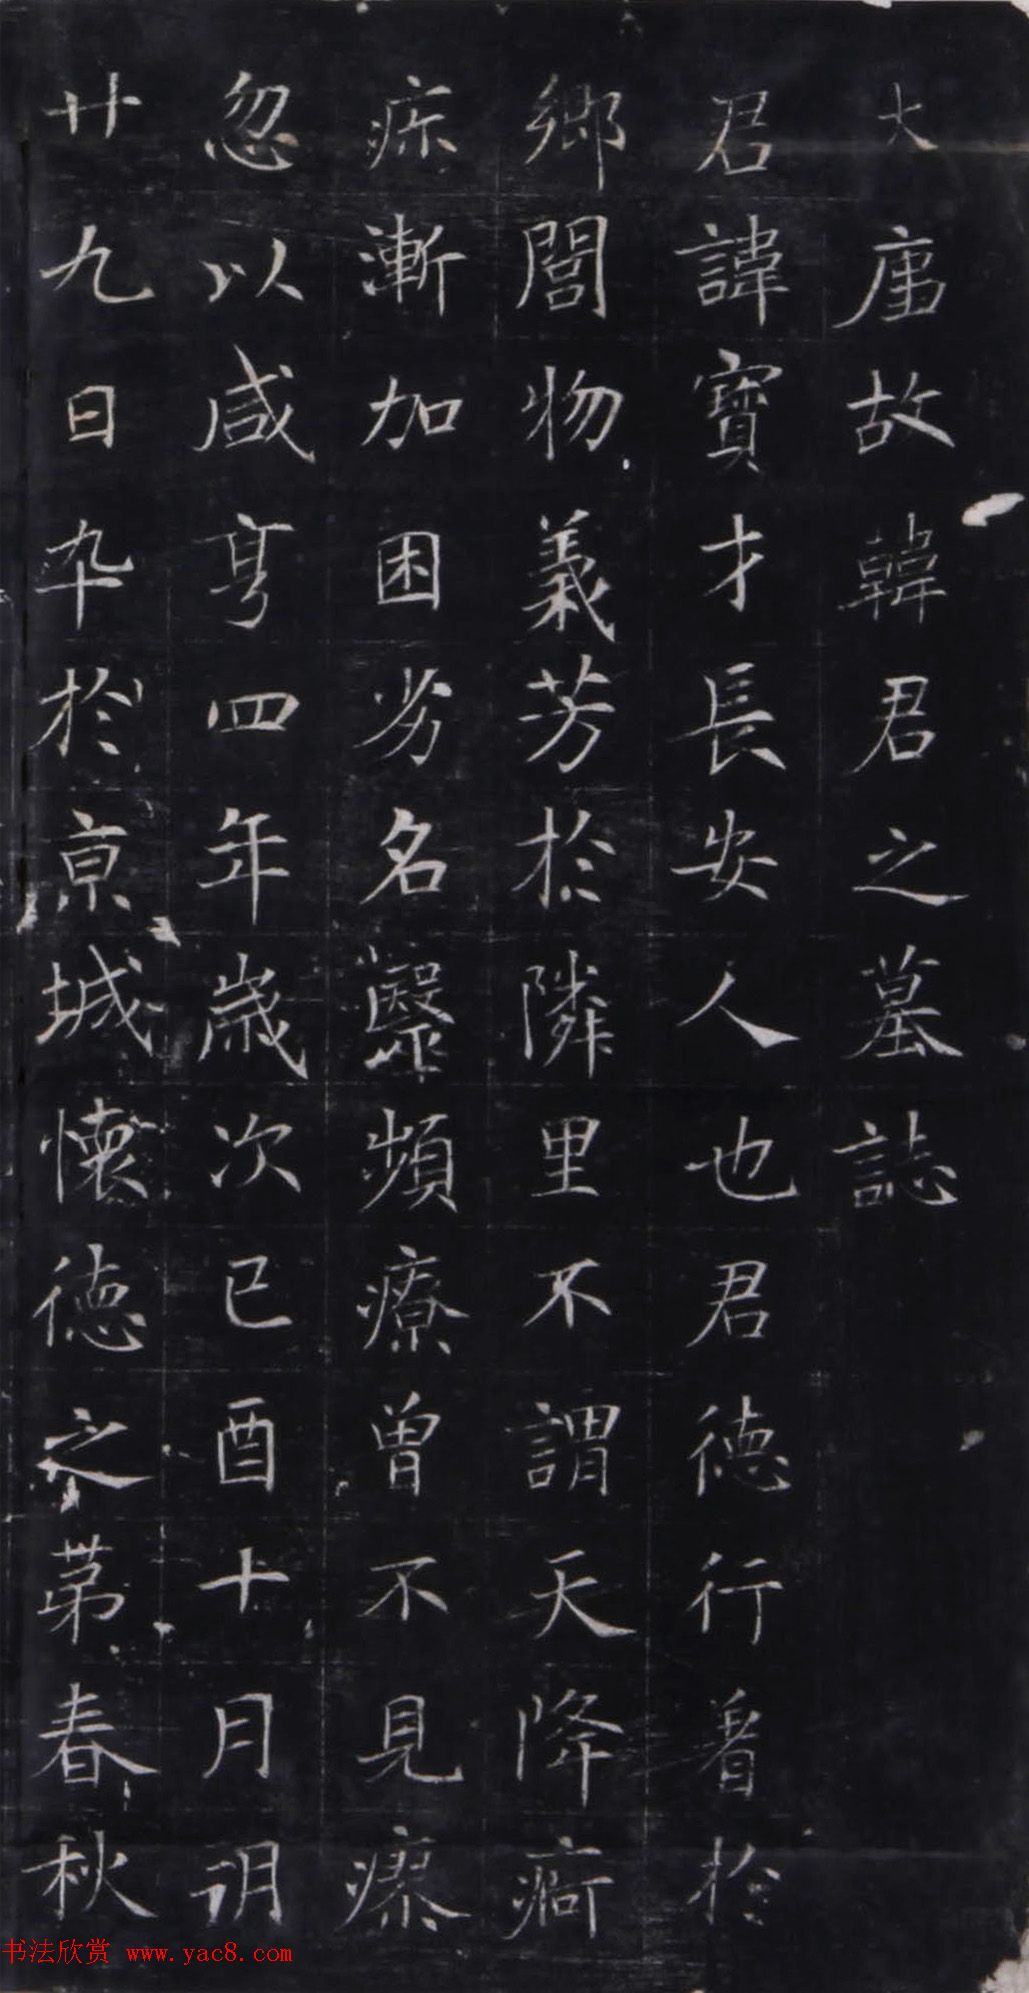 大唐故韓君之墓誌
君諱寶才長安人也君德行著於
鄉閭物義芳於隣里不謂天降
疹漸加困劣名毉頻療曾不見瘳
忽以咸亨四年歲次己酉十月朔
廿九日卒於京城懷德之苐春秋
书法欣赏 www.yac8.com